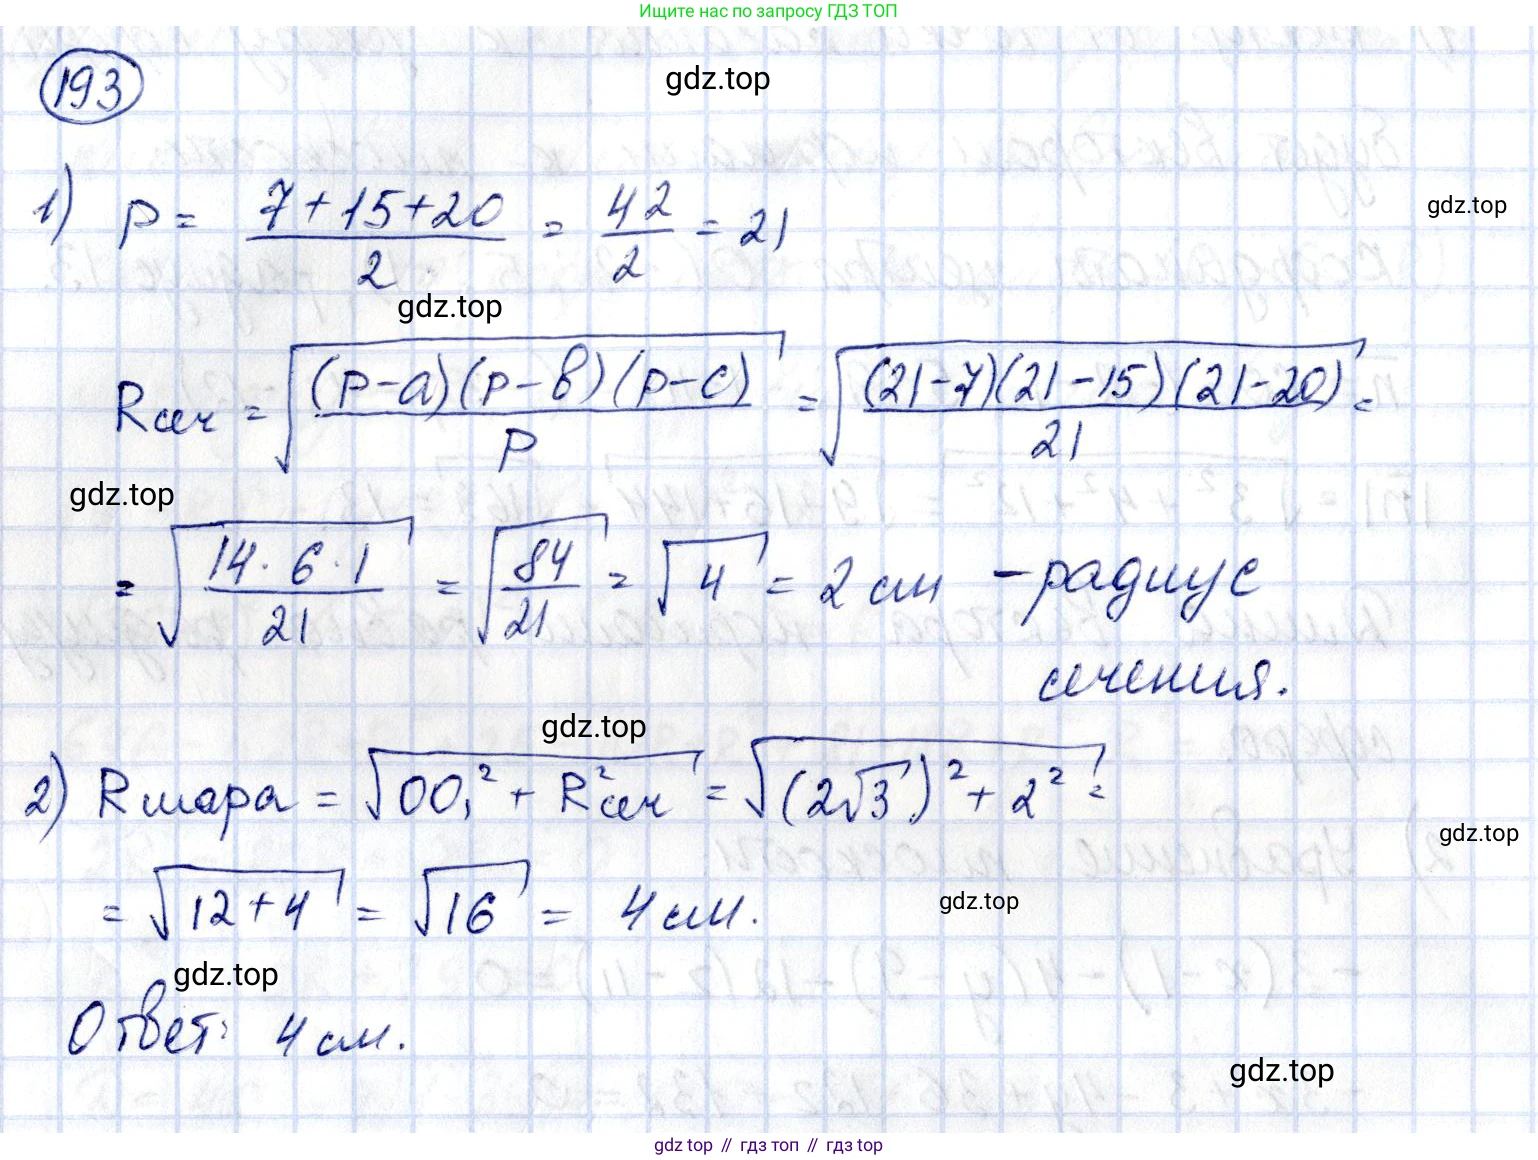 Ищите нас по запросу ГДЗ ТОП
193
gdz.top
1) p = (7+15+20)/2 = 42/2 = 21
gdz.top
gdz.top
Rсеч = √((p-a)(p-b)(p-c)/p) = √((21-7)(21-15)(21-20)/21) =
gdz.top
= √(14·6·1/21) = √(84/21) = √4 = 2 см - радиус
сечения.
gdz.top
2) Rшара = √(OO₁² + R²сеч) = √((2√3)² + 2²) =
gdz.top
= √(12+4) = √16 = 4 см.
gdz.top
gdz.top
Ответ: 4 см.
gdz.top
gdz.top // гдз топ // гдз top